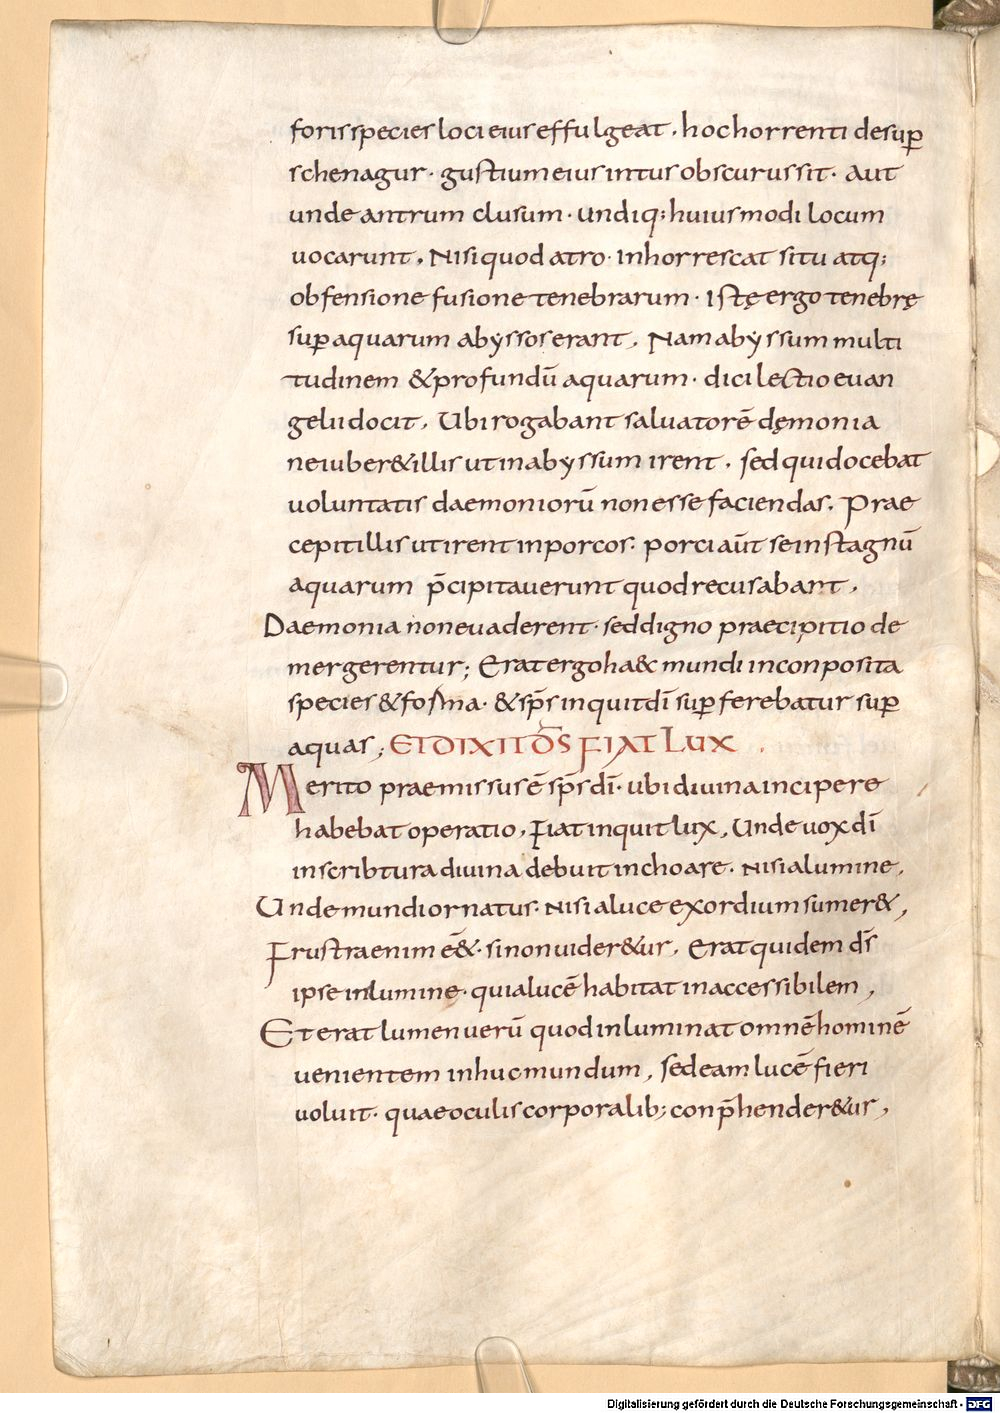 foris species loci eius effulgeat. hoc horrenti desup̱
schenagur· gustium eius intus obscurus sit· Aut
unde antrum clusum· Undiq; huiusmodi locum
uocarunt. Nisi quod atro· inhorrescat situ atq;
obfensione fusione tenebrarum· Istę ergo tenebrę
sup̱ aquarum abyssos erant. Nam abyssum multi
tudinem & profundū aquarum· dici lectio euan
gelii docit. Ubi rogabant saluatorē dęmonia
ne iuber& illis ut in abyssum irent. sed qui docebat
uoluntatis daemoniorū non esse faciendas. Prae
cepit illis ut irent in porcos. porci aūt se in stagnū
aquarum p̄cipitauerunt quod recusabant.
Daemonia non euaderent· sed digno praecipitio de
mergerentur; Erat ergo haec mundi inconposita
species & forma· & sp̄s inquit dī sup̱ferebatur sup̱
aquas; ET DIXIT D̄S FIAT LUX.
Merito praemissus ē sp̄s dī· ubi diuina incipere
habebat operatio, Fiat inquit lux, Unde uox dī
in scribtura diuina debuit inchoare. Nisi a lumine,
Unde mundi ornatus· Nisi a luce exordium sumer&,
Frustra enim ē&· si non uider&ur, Erat quidem d̄s
ipse in lumine· quia lucē habitat inaccessibilem,
Et erat lumen uerū quod inluminat omnē hominē
uenientem in huc mundum, sed eam lucē fieri
uoluit· quae oculis corporalib; conp̄hender&ur,
Digitalisierung gefördert durch die Deutsche Forschungsgemeinschaft - DFG